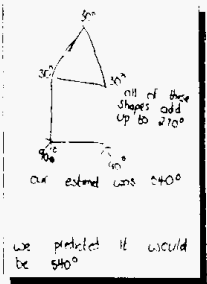 30°
30°
30°
all of these
shapes add
up to 270°
90°
90°
our estend was 240°
we predicted it would
be 540°